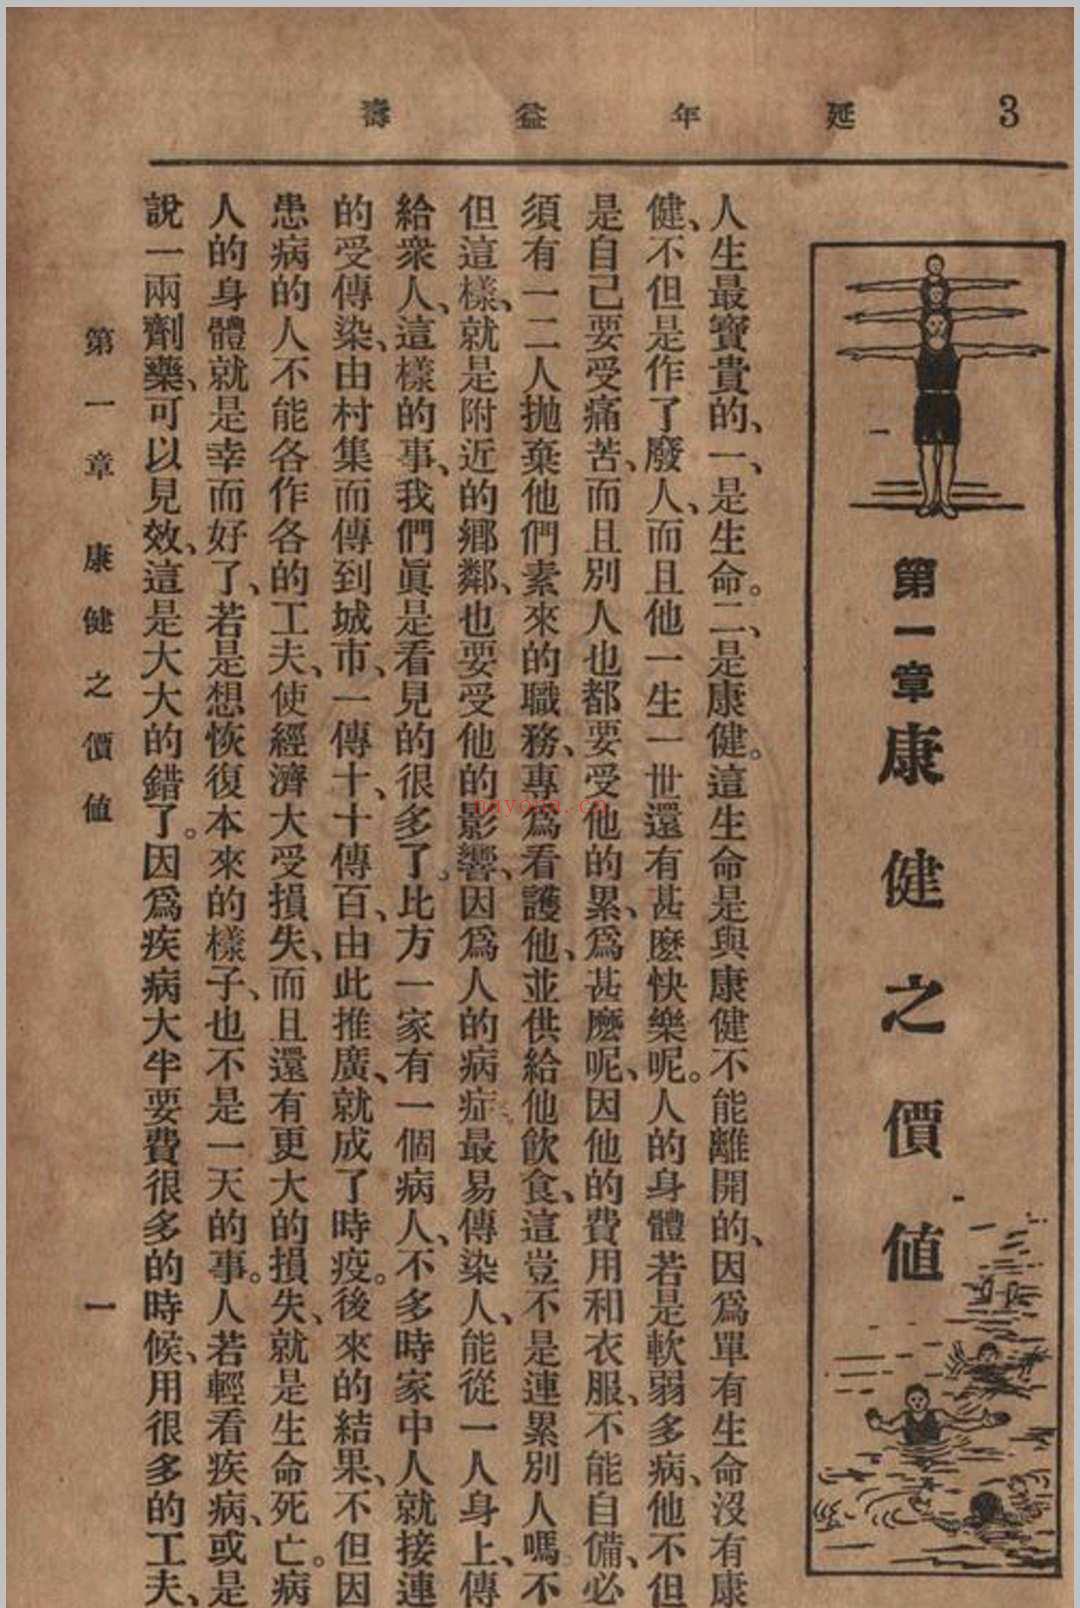 3
延年益壽
第一章康健之價値
人生最寶貴的、一、是生命。二、是康健。這生命是與康健不能離開的、因爲單有生命沒有康
健、不但是作了廢人、而且他一生一世還有甚麽快樂呢。人的身體若是軟弱多病、他不但
是自己要受痛苦、而且別人也都要受他的累、爲甚麽呢、因他的費用和衣服、不能自備、必
須有一二人抛棄他們素來的職務、專爲看護他、並供給他飲食、這豈不是連累別人嗎。不
但這樣、就是附近的鄉鄰、也要受他的影響、因爲人的病症最易傳染人、能從一人身上、傳
給衆人、這樣的事、我們眞是看見的很多了。比方一家有一個病人、不多時家中人就接連
的受傳染、由村集而傳到城市、一傳十、十傳百、由此推廣、就成了時疫。後來的結果、不但因
患病的人不能各作各的工夫、使經濟大受損失、而且還有更大的損失、就是生命死亡。病
人的身體就是幸而好了、若是想恢復本來的樣子、也不是一天的事。人若輕看疾病、或是
說一兩劑藥、可以見效、這是大大的錯了。因爲疾病大半要費很多的時候、用很多的工夫、
第一章 康健之價値
一
nayona.cn